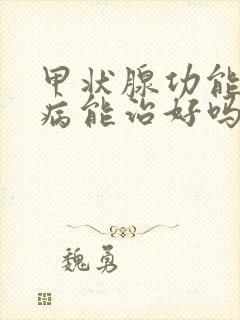 甲状腺功能
病能治好吗
魏勇